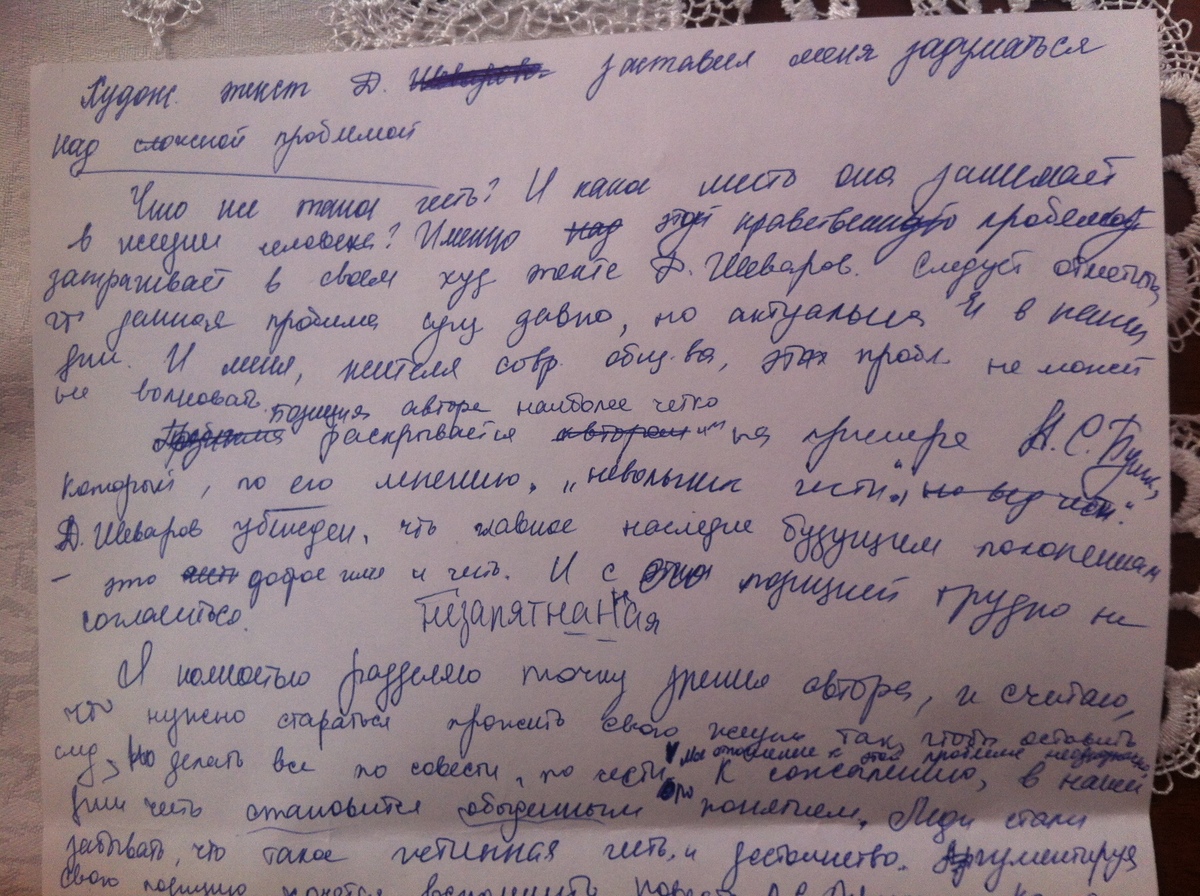 Худож. текст Д. Шеваров заставил меня задуматься
над сложной проблемой
Что же такое честь? И какое место она занимает
в жизни человека? Именно над этой нравственную проблемой
затрагивает в своем худ тексте Д. Шеваров. Следует отметить,
что данная проблема сущ давно, но актуальна и в наши
дни. И меня, жителя совр. общ-ва, эта пробл. не может
не волновать.
Позиция автора наиболее четко
Проблема раскрывается автором на примере Н.С.
который, по его мнению, "невольник чести",
Д. Шеваров убежден, что главное наследие будущим поколениям
- это доброе имя и честь. И с этой позицией трудно не
согласиться.
незапятнанная
Я полностью разделяю точку зрения автора, и считаю,
что нужно стараться прожить свою жизнь так, чтобы оставить
след, но делать все по совести, по чести.
мы отношение к этой проблеме неоднозначно
К сожалению, в наши
дни честь становится обыденным понятием. Люди стали
забывать, что такое истинная честь и достоинство. Аргументируя
свою позицию хочется вспомнить